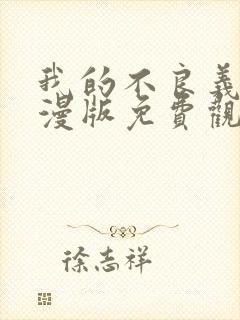 我的不良義
漫版免費觀
徐志祥